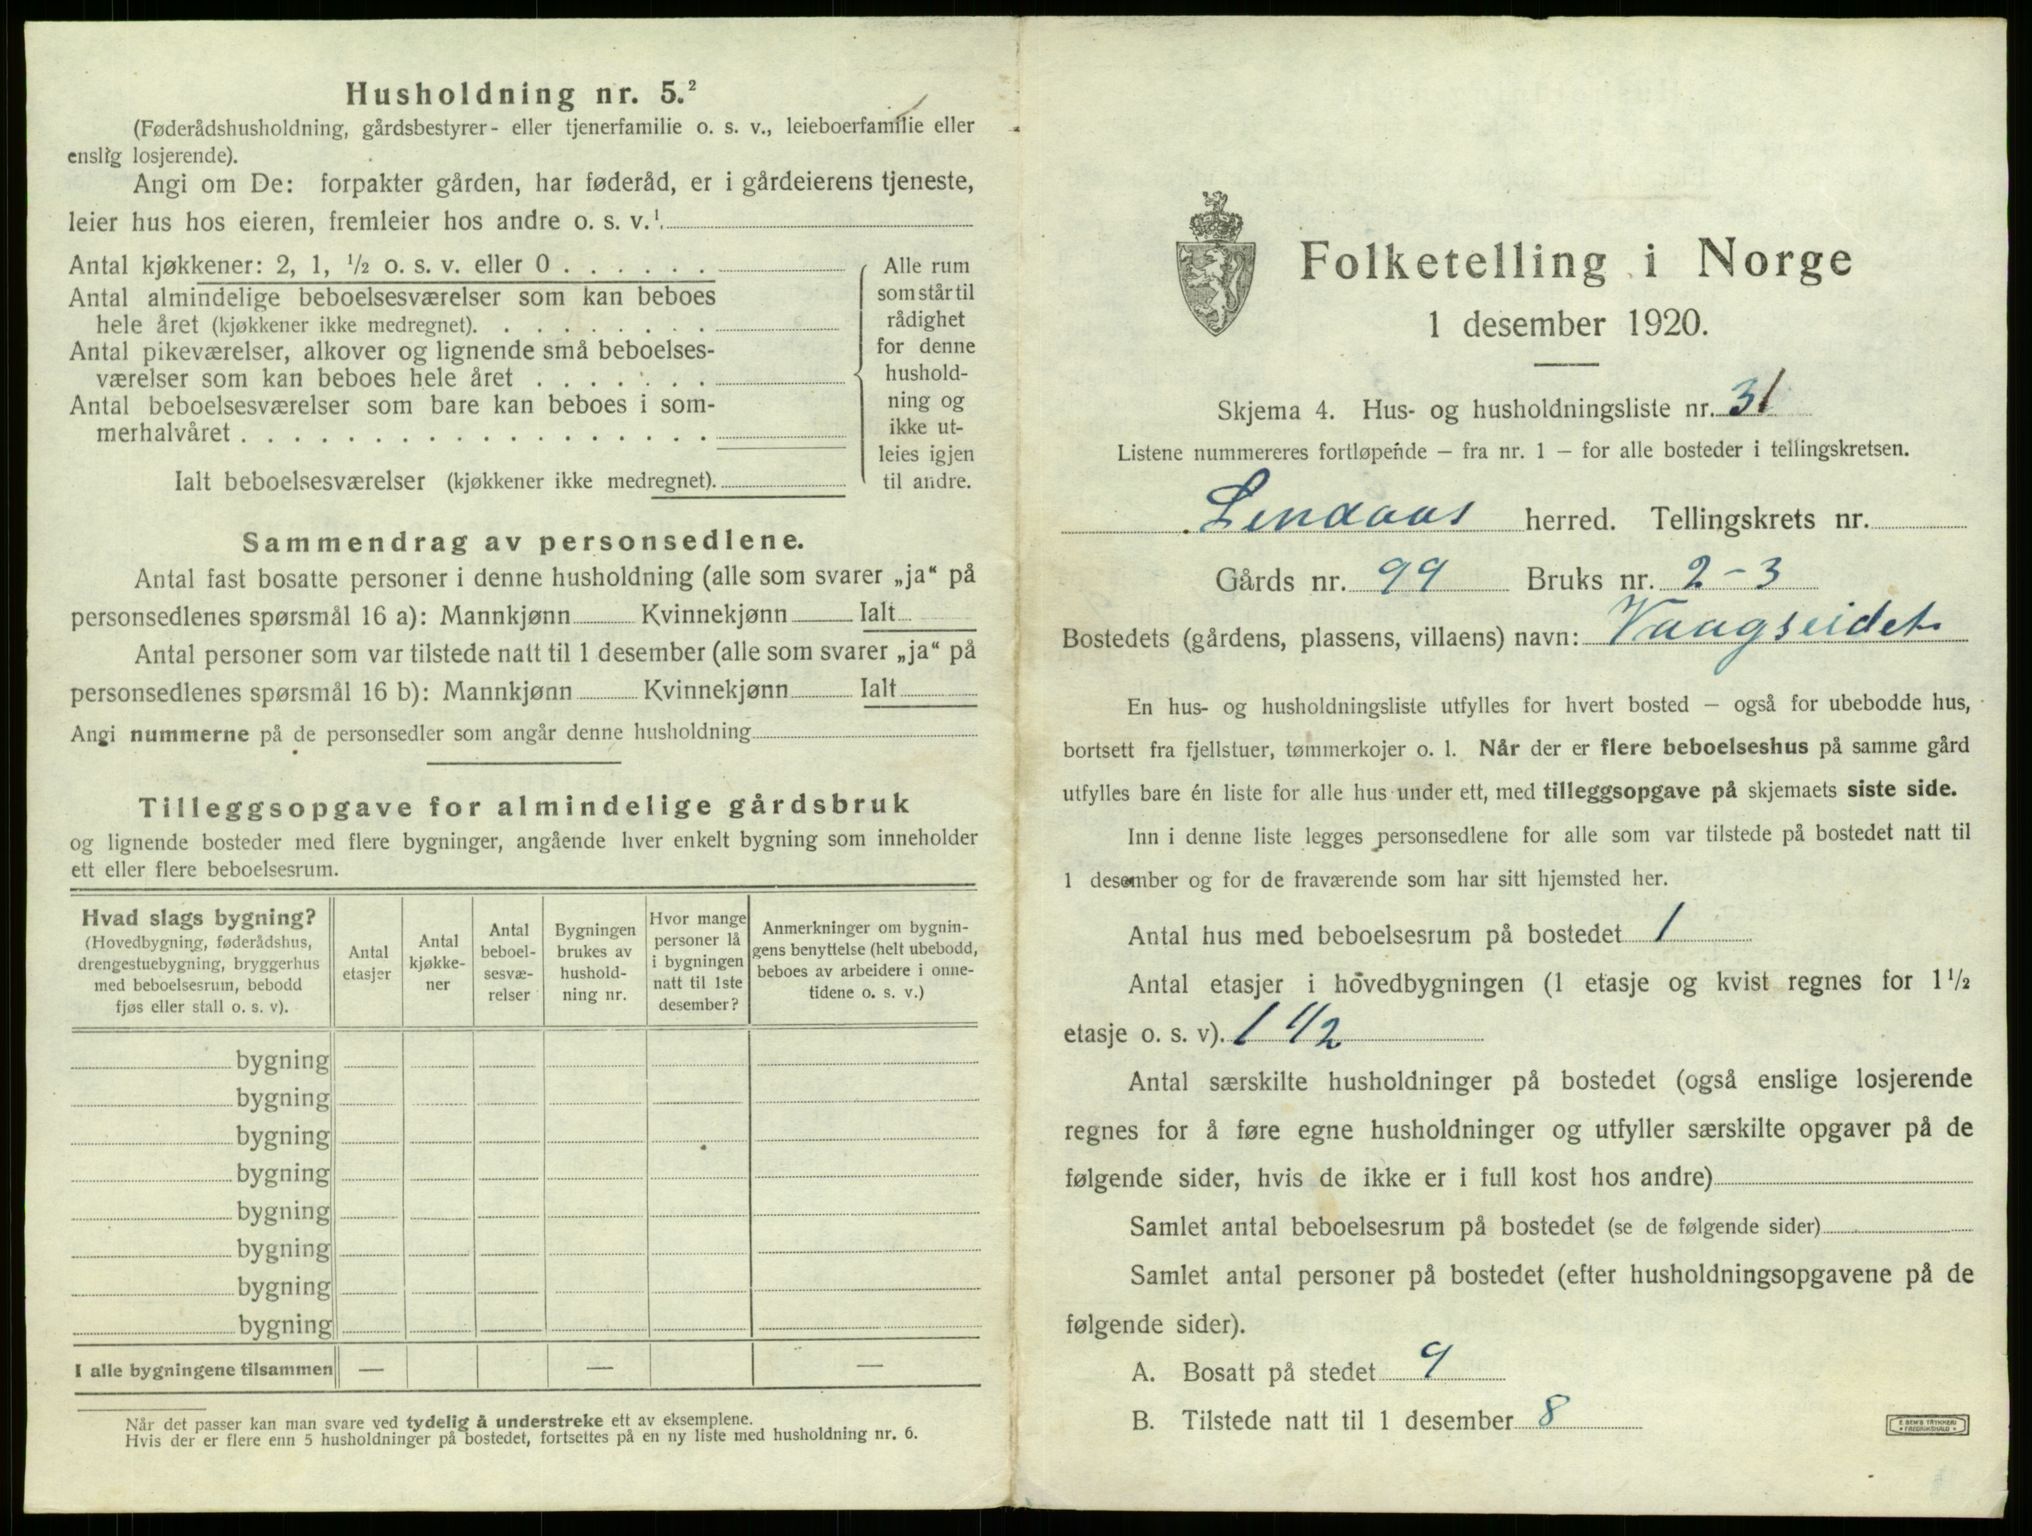 Husholdning nr. 5.²
(Føderådshusholdning, gårdsbestyrer- eller tjenerfamilie o. s. v., leieboerfamilie eller
enslig losjerende).
Angi om De: forpakter gården, har føderåd, er i gårdeierens tjeneste,
leier hus hos eieren, fremleier hos andre o. s. v.¹
Antal kjøkkener: 2, 1, ½ o. s. v. eller 0 . . . . . .
Antal almindelige beboelsesværelser som kan beboes
hele året (kjøkkener ikke medregnet). . . . . . . . .
Antal pikeværelser, alkover og lignende små beboelses-
værelser som kan beboes hele året . . . . . . .
Antal beboelsesværelser som bare kan beboes i som-
merhalvåret . . . . . . . . . . . . . . . . . .
Ialt beboelsesværelser (kjøkkener ikke medregnet).
Alle rum
som står til
rådighet
for denne
hushold-
ning og
ikke ut-
leies igjen
til andre.
Sammendrag av personsedlene.
Antal fast bosatte personer i denne husholdning (alle som svarer „ja“ på
personsedlenes spørsmål 16 a): Mannkjønn Kvinnekjønn Ialt
Antal personer som var tilstede natt til 1 desember (alle som svarer „ja“ på
personsedlenes spørsmål 16 b): Mannkjønn Kvinnekjønn Ialt
Angi nummerne på de personsedler som angår denne husholdning
Tilleggsopgave for almindelige gårdsbruk
og lignende bosteder med flere bygninger, angående hver enkelt bygning som inneholder
ett eller flere beboelsesrum.
Hvad slags bygning?
(Hovedbygning, føderådshus,
drengestuebygning, bryggerhus
med beboelsesrum, bebodd
fjøs eller stall o. s. v).
Antal
etasjer
Antal
kjøkke-
ner
Antal
beboel-
sesvæ-
relser
Bygningen
brukes av
hushold-
ning nr.
Hvor mange
personer lå
i bygningen
natt til 1ste
desember?
Anmerkninger om bygnin-
gens benyttelse (helt ubebodd,
beboes av arbeidere i onne-
tidene o. s. v.)
bygning
bygning
bygning
bygning
bygning
bygning
bygning
bygning
I alle bygningene tilsammen — — —
Når det passer kan man svare ved tydelig å understreke ett av eksemplene.
Hvis der er flere enn 5 husholdninger på bostedet, fortsettes på en ny liste med husholdning nr. 6.
Folketelling i Norge
1 desember 1920.
Skjema 4. Hus- og husholdningsliste nr. 31
Listene nummereres fortløpende — fra nr. 1 — for alle bosteder i tellingskretsen.
Lendaas herred. Tellingskrets nr.
Gårds nr. 99 Bruks nr. 2-3
Bostedets (gårdens, plassens, villaens) navn: Vaagseidet
En hus- og husholdningsliste utfylles for hvert bosted — også for ubebodde hus,
bortsett fra fjellstuer, tømmerkojer o. l. Når der er flere beboelseshus på samme gård
utfylles bare én liste for alle hus under ett, med tilleggsopgave på skjemaets siste side.
Inn i denne liste legges personsedlene for alle som var tilstede på bostedet natt til
1 desember og for de fraværende som har sitt hjemsted her.
Antal hus med beboelsesrum på bostedet 1
Antal etasjer i hovedbygningen (1 etasje og kvist regnes for 1½
etasje o. s. v). 1 1/2
Antal særskilte husholdninger på bostedet (også enslige losjerende
regnes for å føre egne husholdninger og utfyller særskilte opgaver på de
følgende sider, hvis de ikke er i full kost hos andre)
Samlet antal beboelsesrum på bostedet (se de følgende sider)
Samlet antal personer på bostedet (efter husholdningsopgavene på de
følgende sider).
A. Bosatt på stedet 9
B. Tilstede natt til 1 desember 8